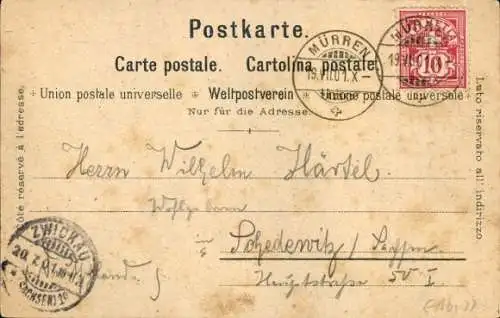 Postkarte.
Carte postale. Cartolina postale.
Union postale universelle * Weltpostverein * Unione postale universale
Nur für die Adresse.
Côté réservé à l'adresse.
Lato riservato all' indirizzo
MÜRREN
19.VII.01.X-
MÜRREN
10
Herrn Wilhelm Härtel
Wohlgeboren
in Schedewitz/Sachsen
Hauptstrasse 50 I
ZWICKAU
(SACHSEN)